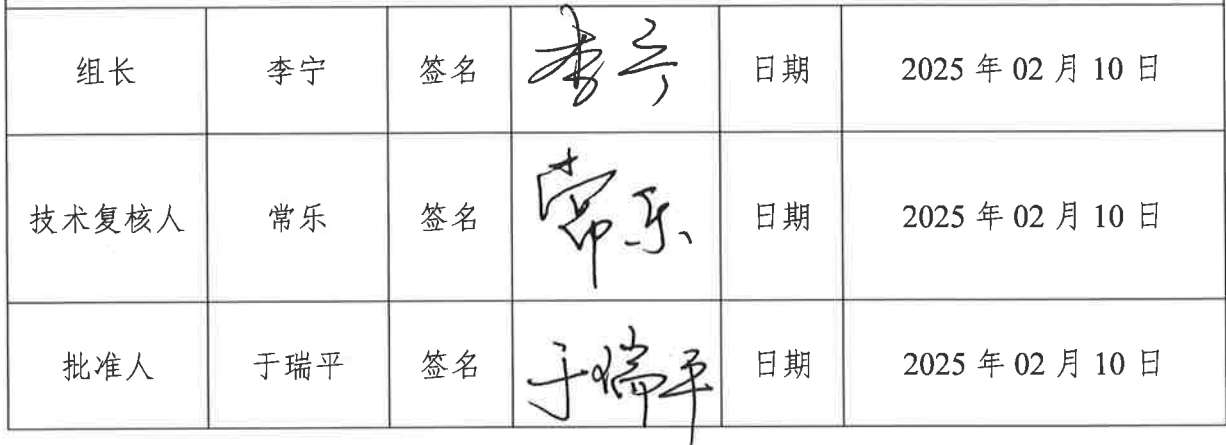 组长 李宁 签名 李宁 日期 2025 年 02 月 10 日
技术复核人 常乐 签名 常乐 日期 2025 年 02 月 10 日
批准人 于瑞平 签名 于瑞平 日期 2025 年 02 月 10 日